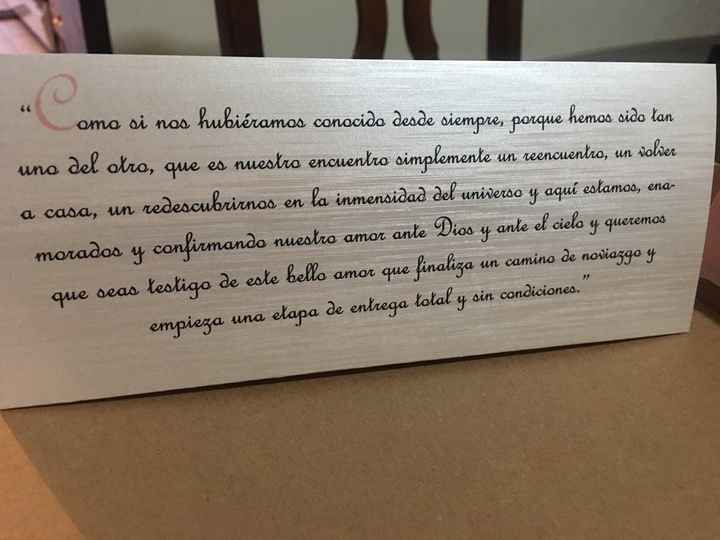 “Como si nos hubiéramos conocido desde siempre, porque hemos sido tan
uno del otro, que es nuestro encuentro simplemente un reencuentro, un volver
a casa, un redescubrirnos en la inmensidad del universo y aquí estamos, ena-
morados y confirmando nuestro amor ante Dios y ante el cielo y queremos
que seas testigo de este bello amor que finaliza un camino de noviazgo y
empieza una etapa de entrega total y sin condiciones.”